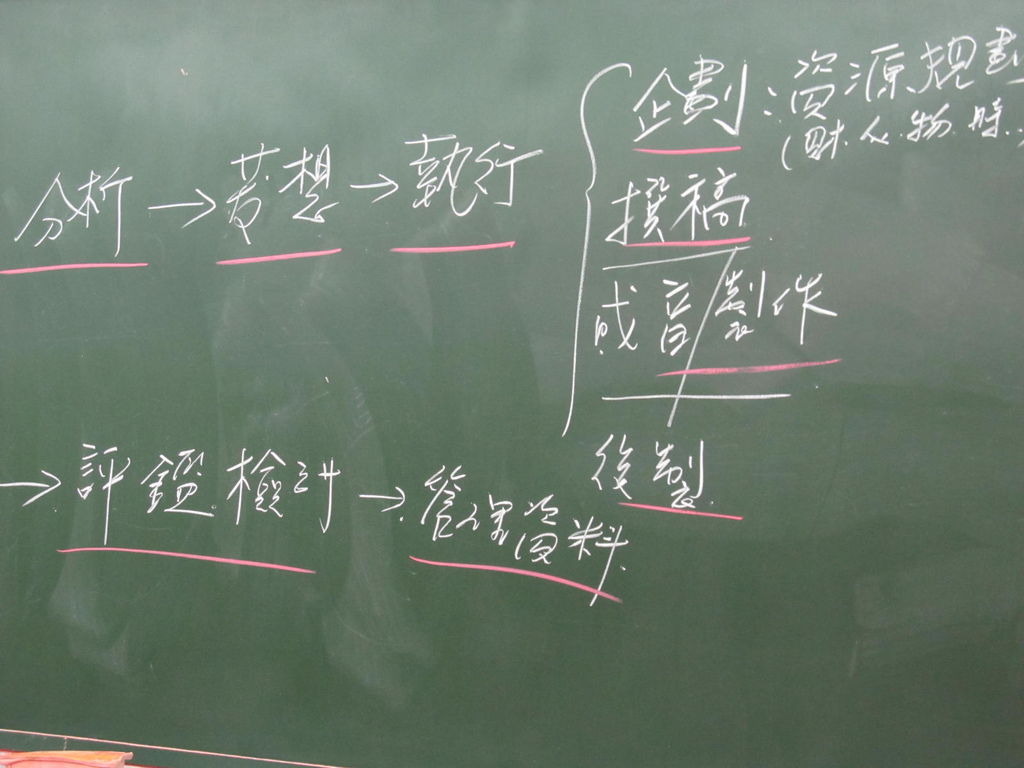 分析→芻想→執行
企劃：資源規劃
(財.人.物.時..
撰稿
成音/製作
後製
→評鑑檢討→管理資料